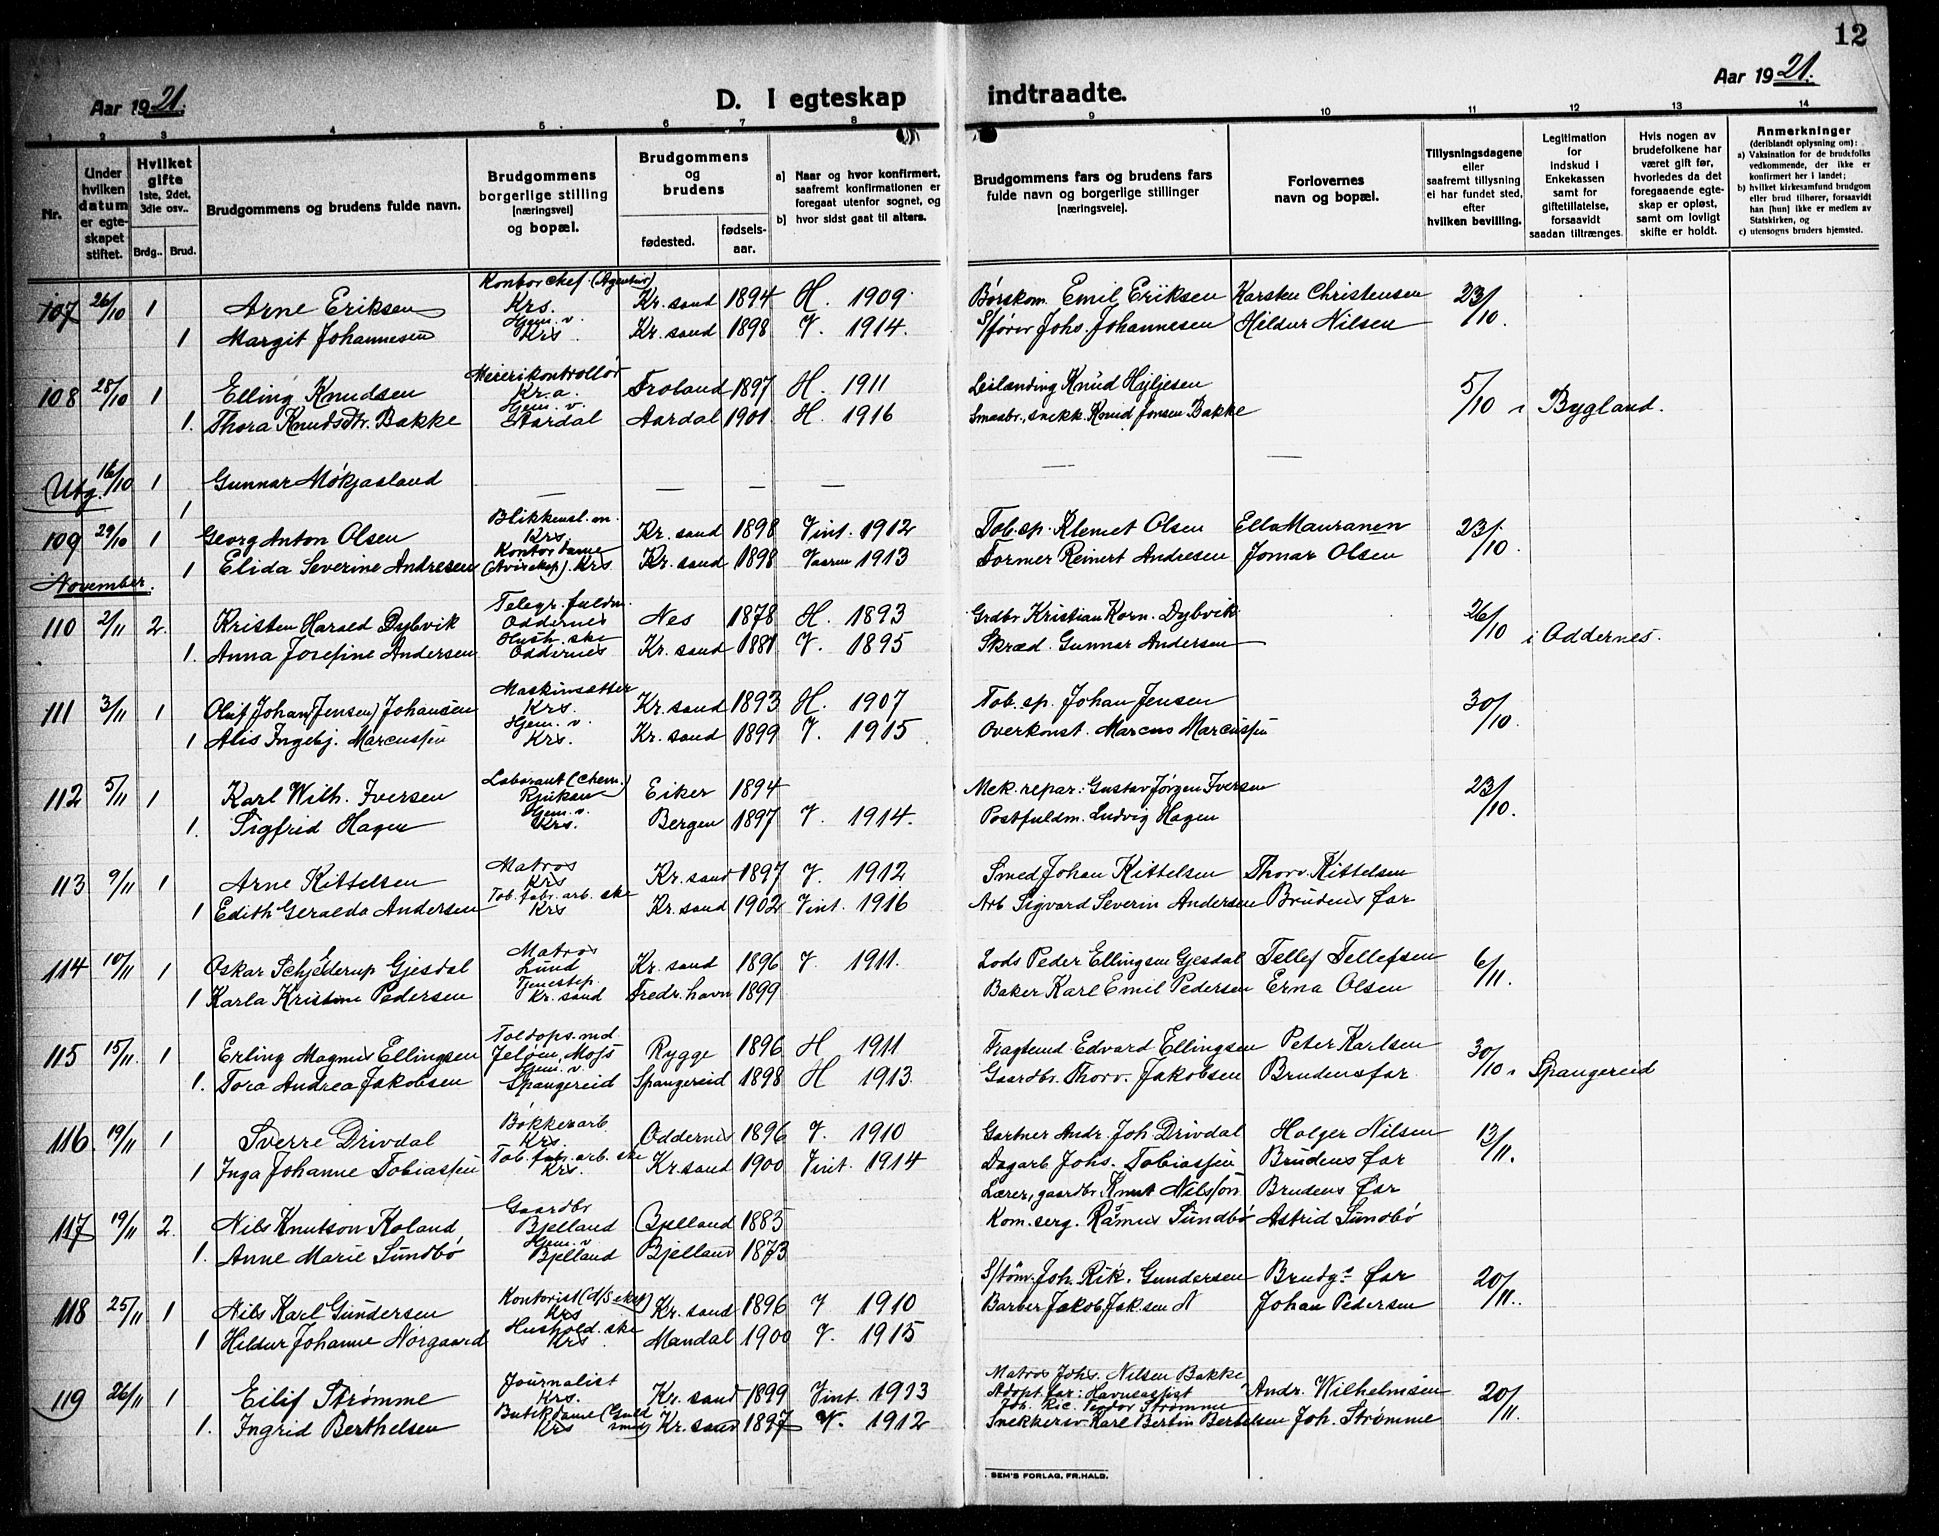 12
Aar 1921.
D. I egteskap indtraadte.
Aar 1921.
1 2 3 4 5 6 7 8 9 10 11 12 13 14
Nr.
Under hvilken datum er egteskapet stiftet.
Hvilket gifte 1ste, 2det, 3die osv..
Brdg.. Brud.
Brudgommens og brudens fulde navn.
Brudgommens borgerlige stilling [næringsvei] og bopæl.
Brudgommens og brudens
fødested. fødsels-aar.
a) Naar og hvor konfirmert, saafremt konfirmationen er foregaat utenfor sognet, og
b) hvor sidst gaat til alters.
Brudgommens fars og brudens fars fulde navn og borgerlige stillinger [næringsveie].
Forlovernes navn og bopæl.
Tillysningsdagene eller saafremt tillysning ei har fundet sted, efter hvilken bevilling.
Legitimation for Indskud i Enkekassen samt for giftetillatelse, forsaavidt saadan tiltrænges.
Hvis nogen av brudefolkene har været gift før, hvorledes da det foregaaende egteskap er opløst, samt om lovligt skifte er holdt.
Anmerkninger (deriblandt oplysning om):
a) Vaksination for de brudefolks vedkommende, der ikke er konfirmert her i landet;
b) hvilket kirkesamfund brudgom eller brud tilhører, forsaavidt han [hun] ikke er medlem av Statskirken, og
c) utensogns bruders hjemsted.
107 26/10 1 Arne Eriksen Kontorchef (Agentur) Krs. Kr.sand 1894 H. 1909. Børskom. Emil Eriksen Karsten Christensen 23/10.
1 Margit Johannesen Hjem. v. Krs. Kr.sand 1898 V. 1914. S/fører Johs. Johannesen Hildur Nilsen
108 28/10 1 Elling Knudsen Meierikontrollør Kr.a. Froland 1897 H. 1911 Leilænding Knud 5/10 i Bygland.
1. Thora Knudsdtr. Bakke Hjem. v. Aardal Aardal 1901. H. 1916 Smaabr., snekk. Knud Jonsen Bakke
Utg. 16/10 1 Gunnar Mókjasland — — — — — —
1
109 29/10 1 Georg Anton Olsen Blikkensl.m. Krs. Kr.sand 1898 Vint. 1912 Tob.sp. Klemet Olsen Ella Mauranen 23/10.
1 Elida Severine Andresen Kontordame (Aviseksp). Krs Kr.sand 1898 Vaaren 1913 Former Reinert Andresen Jomar Olsen
November.
110 2/11 2. Kristen Harald Dybvik Telegr. fuldm. Oddernes Nes 1878 H. 1893 Grdbr Kristian Korn. Dybvik 26/10 i Oddernes.
1. Anna Josefine Andersen Hush. ske Oddernes Kr.sand 1881 V. 1895 Skræd. Gunnar Andersen
111 3/11 1 Oluf Johan (Jensen) Johansen Maskinsætter Krs. Kr.sand 1893 H. 1907 Tob.sp. Johan Jensen 30/10.
1 Alis Ingebj. Marcussen Hjem. v. Krs. Kr.sand 1899 V. 1915. Overkonst. Marcus Marcussen
112 5/11 1 Karl Wilh. Iversen Laborant (chem.) Rjukan Eiker 1894 Mek. repar: Gustav Jørgen Iversen 23/10.
1. Sigfrid Hagen Hjem. v. Krs. Bergen 1897 V. 1914. Postfuldm. Ludvig Hagen
113 9/11 1 Arne Kittelsen Matros Krs Kr.sand 1897 V. 1912 Smed Johan Kittelsen Thorv. Kittelsen
1 Edith Geralda Andersen Tob.fabr.arb.ske Krs Kr.sand 1902 Vint. 1916 Arb Sigvard Severin Andersen Brudens far
114 10/11 1 Oskar Schjelderup Gjesdal Matros Lund Kr.sand 1896 V. 1911. Lods Peder Ellingsen Gjesdal Tellef Tellefsen 6/11.
1 Karla Kristine Pedersen Tjenestep. Kr.sand Fredr.havn 1899 Baker Karl Emil Pedersen Erna Olsen
115 15/11. 1 Erling Magnus Ellingsen Toldops.md. Jeløen, Moss Rygge 1896 H 1911 Fragtemd Edvard Ellingsen Peter Karlsen 30/10 i Spangereid
1. Tora Andrea Jakobsen Hjem. v. Spangereid Spangereid 1898 H 1913. Gaardbr. Thorv. Jakobsen Brudensfar
116 19/11 1 Sverre Drivdal Bókkerarb Krs. Oddernes 1896 V. 1910 Gartner Andr. Joh. Drivdal Holger Nilsen 13/11.
1 Inga Johanne Tobiassen Tob.fabr.arb.ske Krs. Kr.sand 1900 Vint. 1914 Dagarb Johs. Tobiassen Brudens far
117 19/11 2. Nils Knutson Koland Gaardbr Bjelland Bjelland 1885 Lærer, gaardbr Knut Nilsson Brudens far
1. Anne Marie Sundbó Hjem. v Bjelland Bjelland 1873 Kom. serg. Rasmus Sundbó Astrid Sundbó
118 25/11 1 Nils Karl Gundersen Kontorist (d/s eksp) Krs Kr.sand 1896 V 1910 S/tóm. Joh. Rik. Gundersen Brudg.s far 20/11.
1 Hildur Johanne Nórgaard Hushold.ske Krs Mandal 1900 V. 1915 Barber Jakob Jak.sen N Johan Pedersen
119 26/11 1 Eilif Strømme Journalist Krs. Kr.sand 1899 Vint. 1913 Matros Johs. Nilsen Bakke Adopt. far: Havneassist Joh. Ric. Teodor Strømme Andr. Wilhelmsen 20/11.
1. Ingrid Berthelsen Butikdame (Guldsmed) Krs Kr.sand 1897 V. 1912 Snekkersv. Karl Bertin Bertelsen Joh. Strømme
SEM'S FORLAG, FR.HALD.